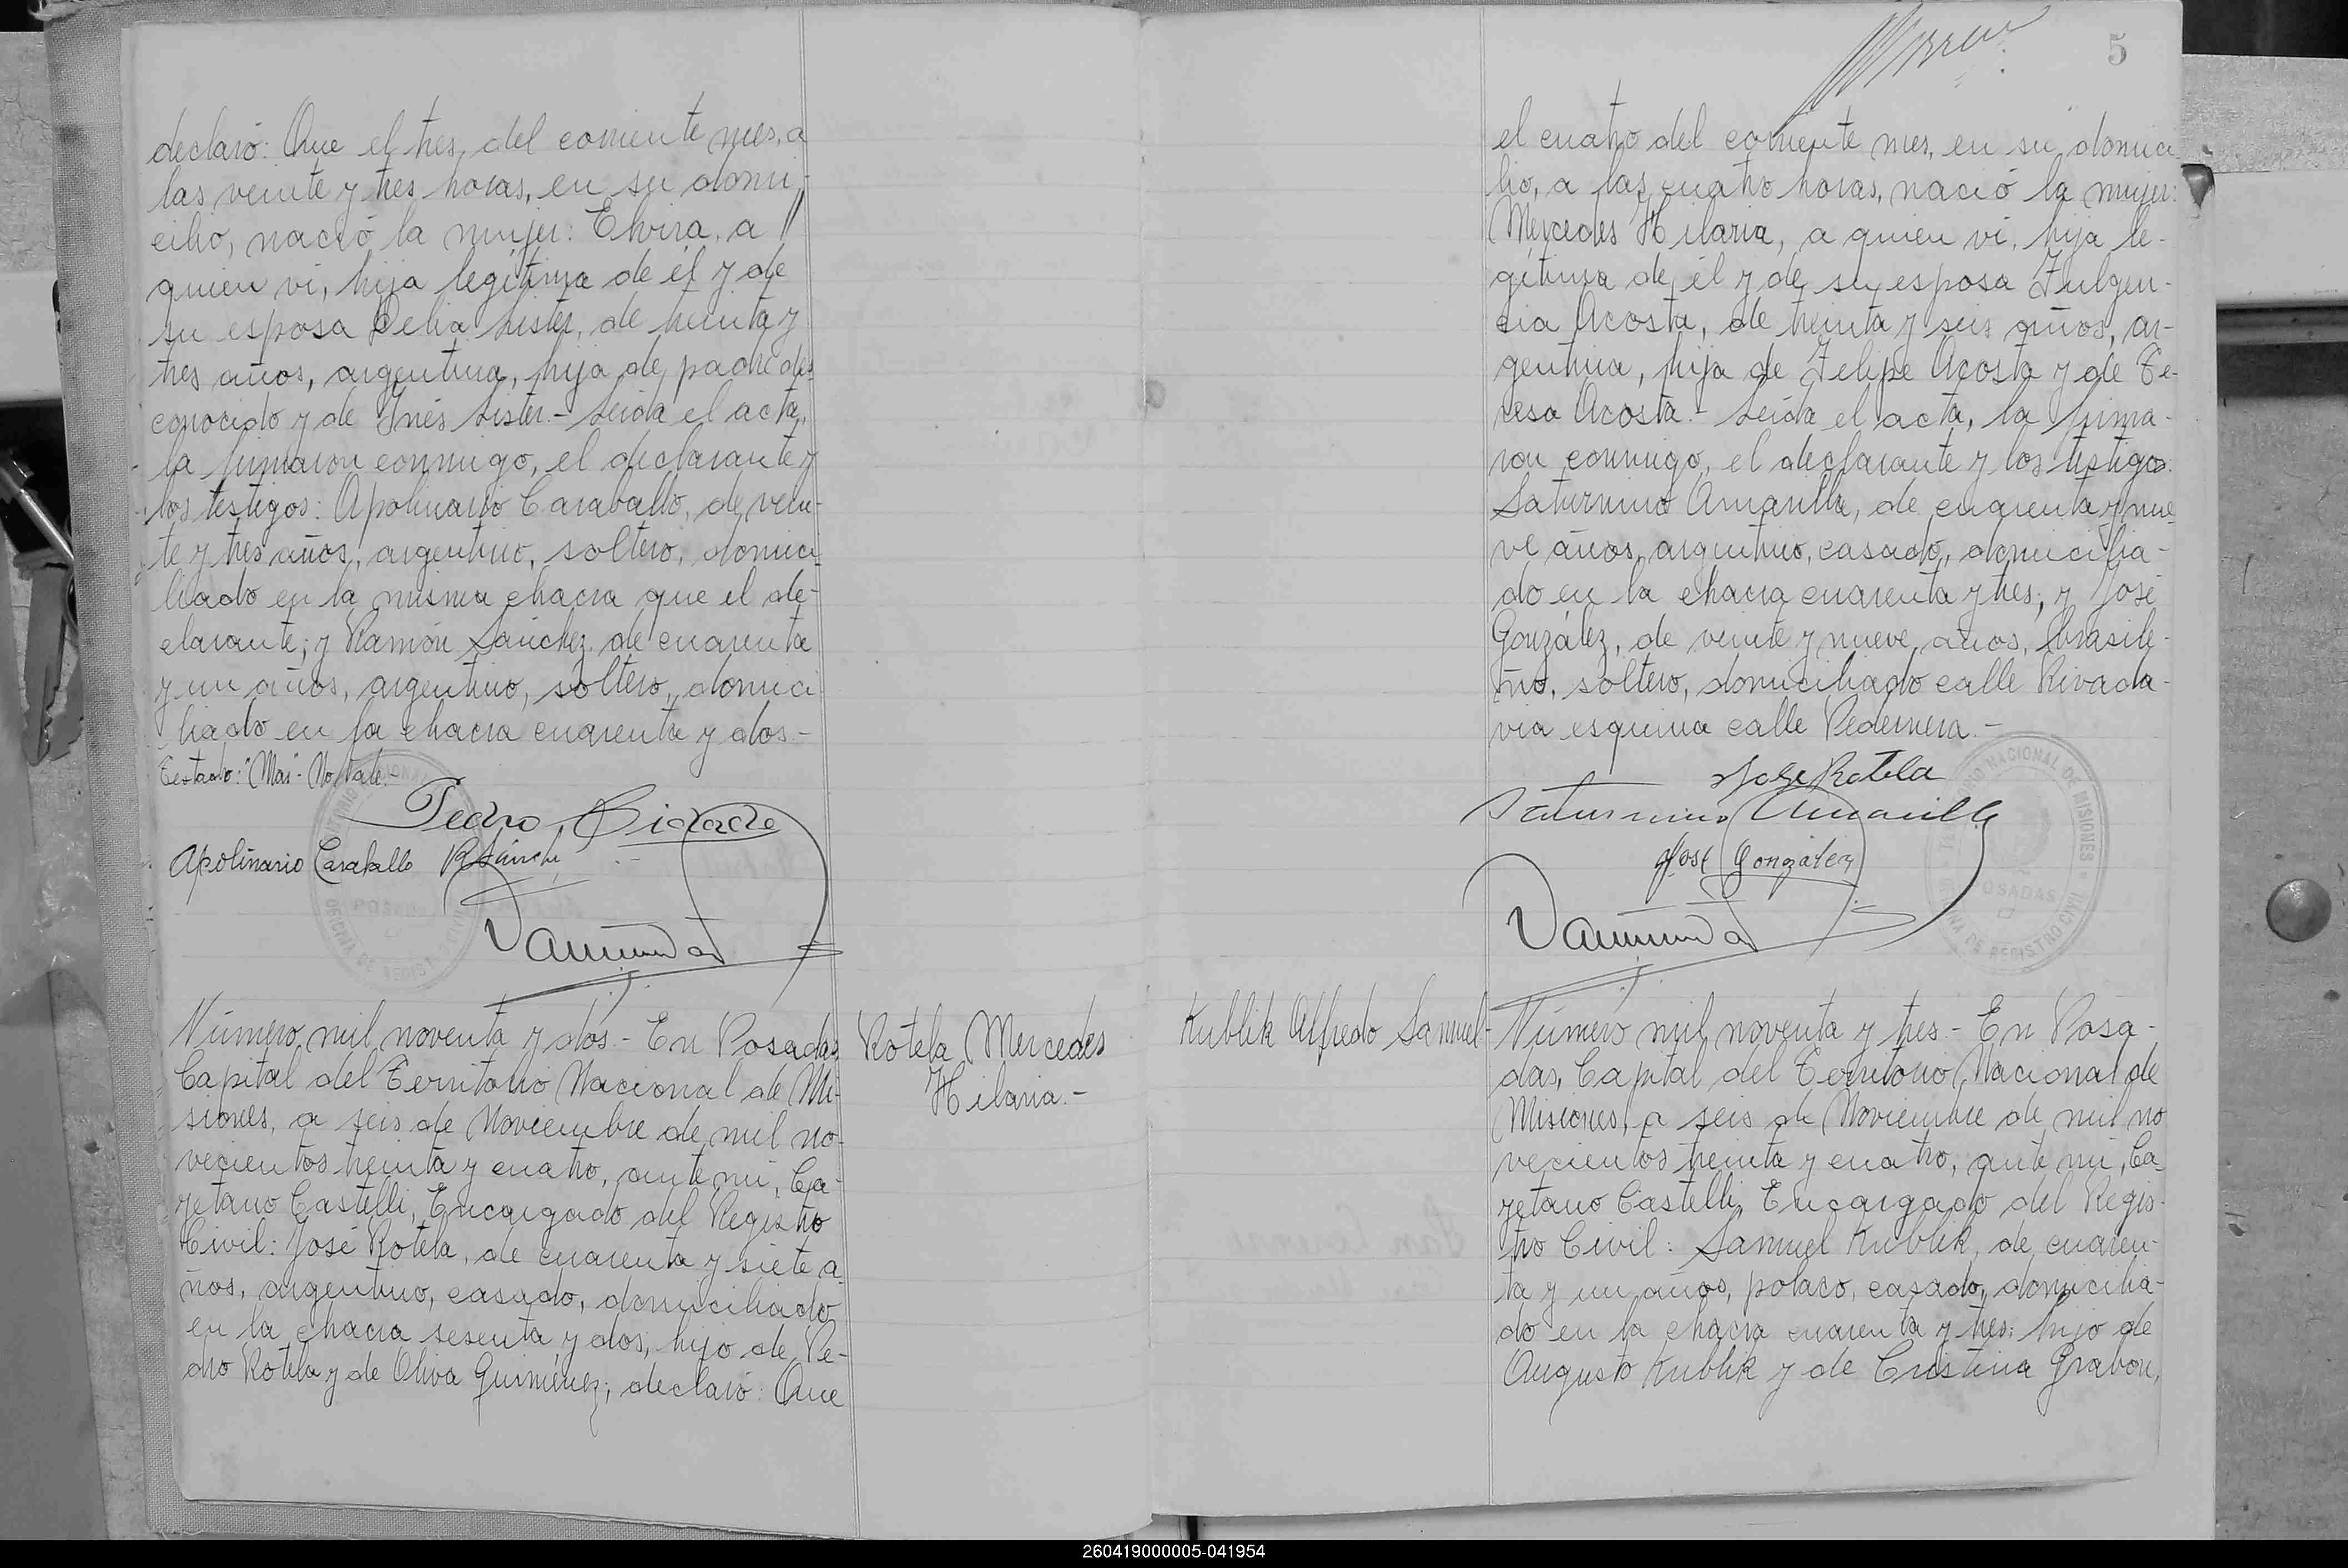 declaró: Que el tres, del corriente mes, a
las veinte y tres horas, en su domi-
cilio, nació la mujer: Elvira, a
quien vi, hija legítima de él y de
su esposa Delia Lister, de treinta y
tres años, argentina, hija de padre des-
conocido y de Inés Lister.- Leída el acta,
la firmaron conmigo, el declarante y
los testigos: Apolinario Caraballo, de vein-
te y tres años, argentino, soltero, domici-
liado en la misma chacra que el de-
clarante; y Ramón Sánchez, de cuarenta
y un años, argentino, soltero, domici
liado en la chacra cuarenta y dos.-
Testado: "Mar"- No Vale.-
Pedro
Apolinario Caraballo R Sánchez
OFICINA DE REGISTRO CIVIL
POSADAS
Número mil noventa y dos.- En Posadas
Capital del Territorio Nacional de Mi-
siones, a seis de Noviembre de mil no-
vecientos treinta y cuatro, ante mi, Ca-
yetano Castelli, Encargado del Registro
Civil: José Rotela, de cuarenta y siete a-
ños, argentino, casado, domiciliado
en la chacra sesenta y dos, hijo de Pe-
dro Rotela y de Oliva Guiménez; declaró: Que
Rotela Mercedes
Hilaria.-
5
el cuatro del corriente mes, en su domici
lio, a las cuatro horas, nació la mujer:
Mercedes Hilaria, a quien vi, hija le-
gítima de él y de su esposa Fulgen-
cia Acosta, de treinta y seis años, ar-
gentina, hija de Felipe Acosta y de Te-
resa Acosta.- Leída el acta, la firma-
ron conmigo, el declarante y los testigos:
Saturnino Amarilla, de cuarenta y nue-
ve años, argentino, casado, domicilia-
do en la chacra cuarenta y tres; y José
González, de veinte y nueve años, brasile-
ño, soltero, domiciliado calle Rivada-
via esquina calle Pedernera.-
Jose Rotela
Saturnino Amarilla
José González
TERRITORIO NACIONAL DE MISIONES
POSADAS
OFICINA DE REGISTRO CIVIL
Kublik Alfredo Samuel-
Número mil noventa y tres.- En Posa-
das, Capital del Territorio Nacional de
Misiones, a seis de Noviembre de mil no
vecientos treinta y cuatro, ante mi, Ca-
yetano Castelli, Encargado del Regis-
tro Civil: Samuel Kublik, de cuaren-
ta y un años, polaco, casado, domicilia-
do en la chacra cuarenta y tres; hijo de
Augusto Kublik y de Cristina Grabon,
260419000005-041954